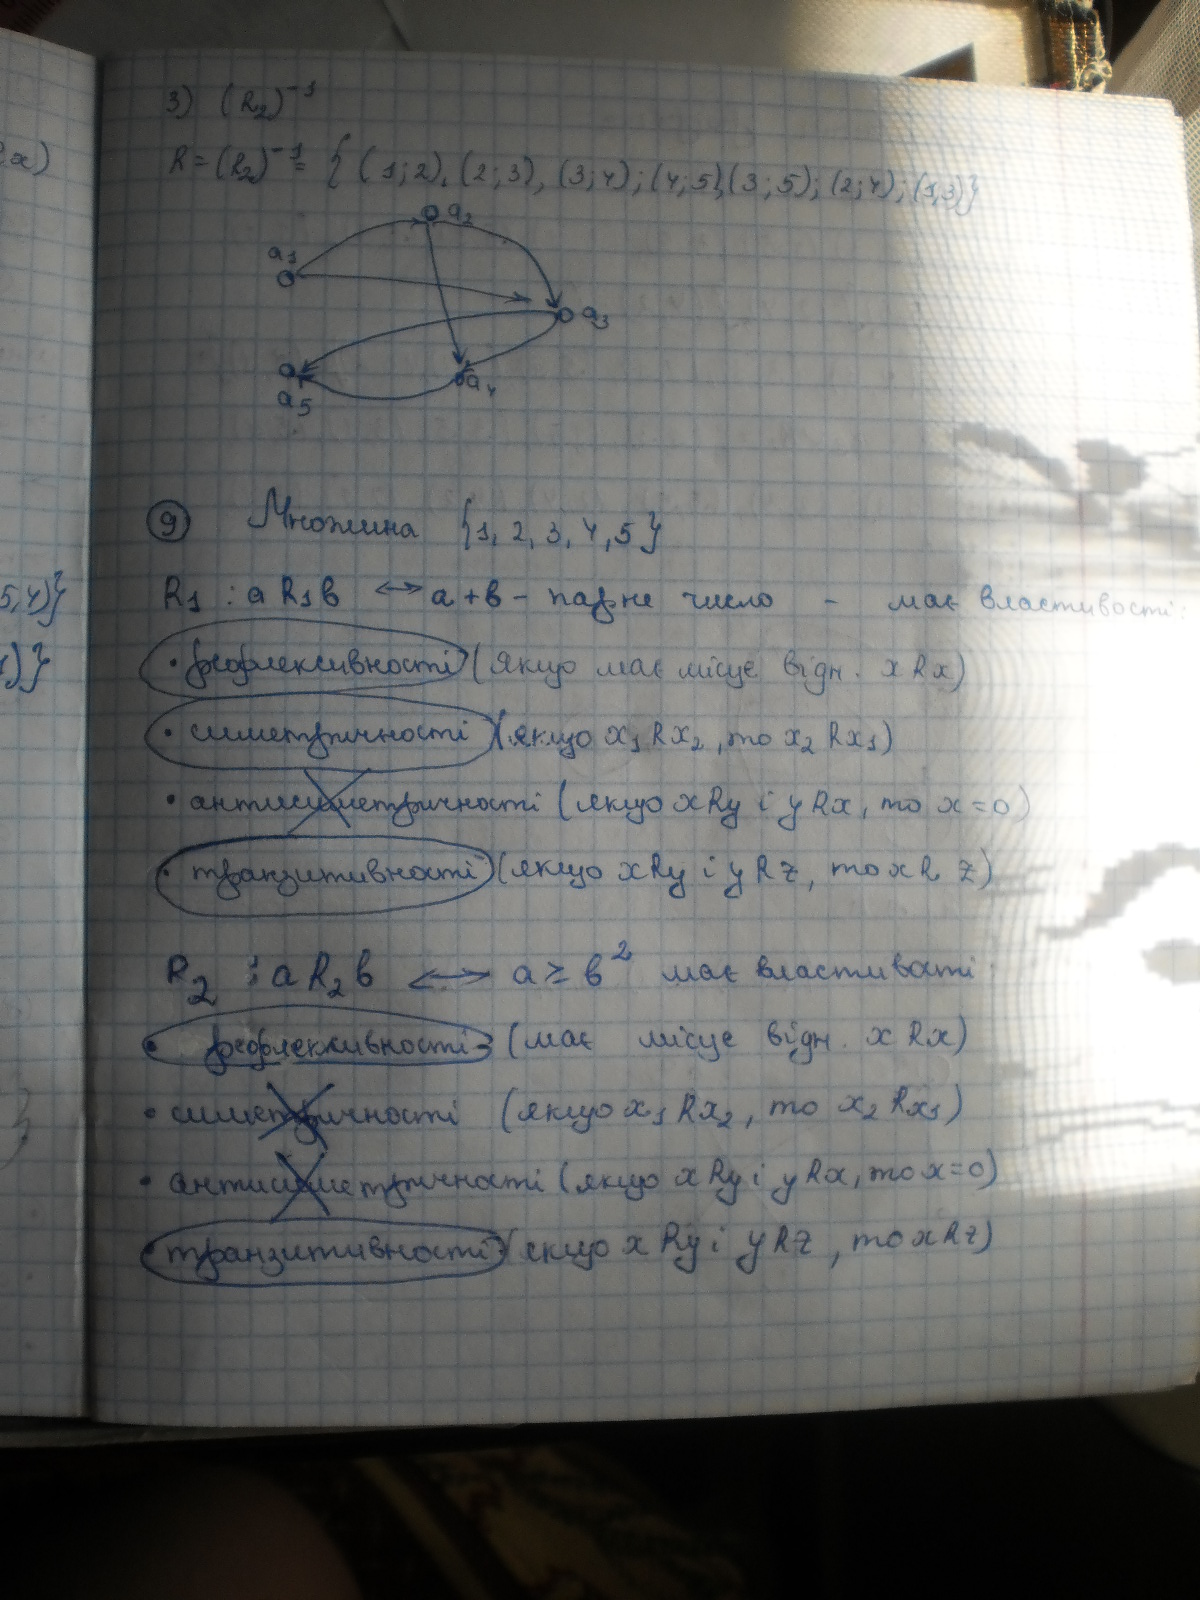 3) (R₂)⁻¹
R = (R₂)⁻¹ = { (1;2), (2;3), (3;4); (4;5), (3;5); (2;4); (1,3)}
a₂
a₁
a₃
a₄
a₅
9 Множина {1, 2, 3, 4, 5}
R₁ : a R₁ b ↔ a + b – парне число – має властивості:
• рефлексивності (якщо має місце відн. x R x)
• симетричності (якщо x₁ R x₂, то x₂ R x₁)
• антисиметричності (якщо x R y і y R x, то x = 0)
• транзитивності (якщо x R y і y R z, то x R z)
R₂ : a R₂ b ↔ a ≥ b² має властивості
• рефлексивності (має місце відн. x R x)
• симетричності (якщо x₁ R x₂, то x₂ R x₁)
• антисиметричності (якщо x R y і y R x, то x = 0)
• транзитивності (якщо x R y і y R z, то x R z)
x)
5,4)}
)}